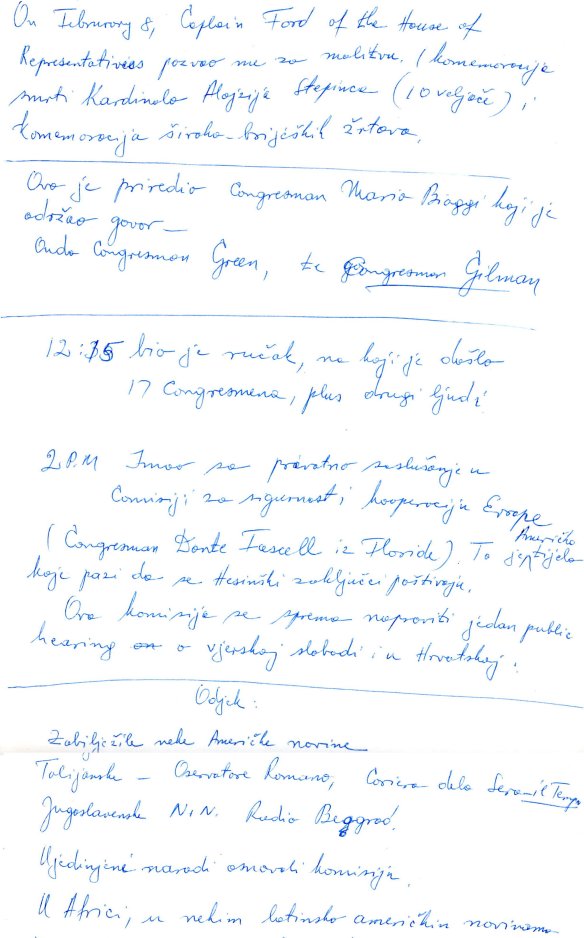 On February 8, Caplain Ford of the House of
Representatives pozvao me za molitvu. (komemoracija
smrti Kardinala Alojzija Stepinca (10 veljače) i
komemoracija široko-brijeških žrtava.
Ovo je priredio Congresman Mario Biaggi koji je
održao govor —
Onda Congresman Green, te Congresman Gilman
12:15 bio je ručak, na koji je došlo
17 Congresmena, plus drugi ljudi
2 P.M Imao sa privatno saslušanje u
Comisiji za sigurnost i kooperaciju Evrope
(Congresman Dante Fascell iz Floride). To je Američko tijelo
koje pazi da se Hesinški zaključci poštivaju.
Ova komisija se sprema napraviti jedan public
hearing o vjerskoj slobodi i u Hrvatskoj.
Odjek:
Zabilježile neke Američke novine
Talijanske — Oservatore Romano, Coriera dela Sera il Tempo
Jugoslavenske N.i.N. Radio Beograd.
Ujedinjene narodi osnovali komisiju.
U Africi, u nekim latinsko američkim novinama